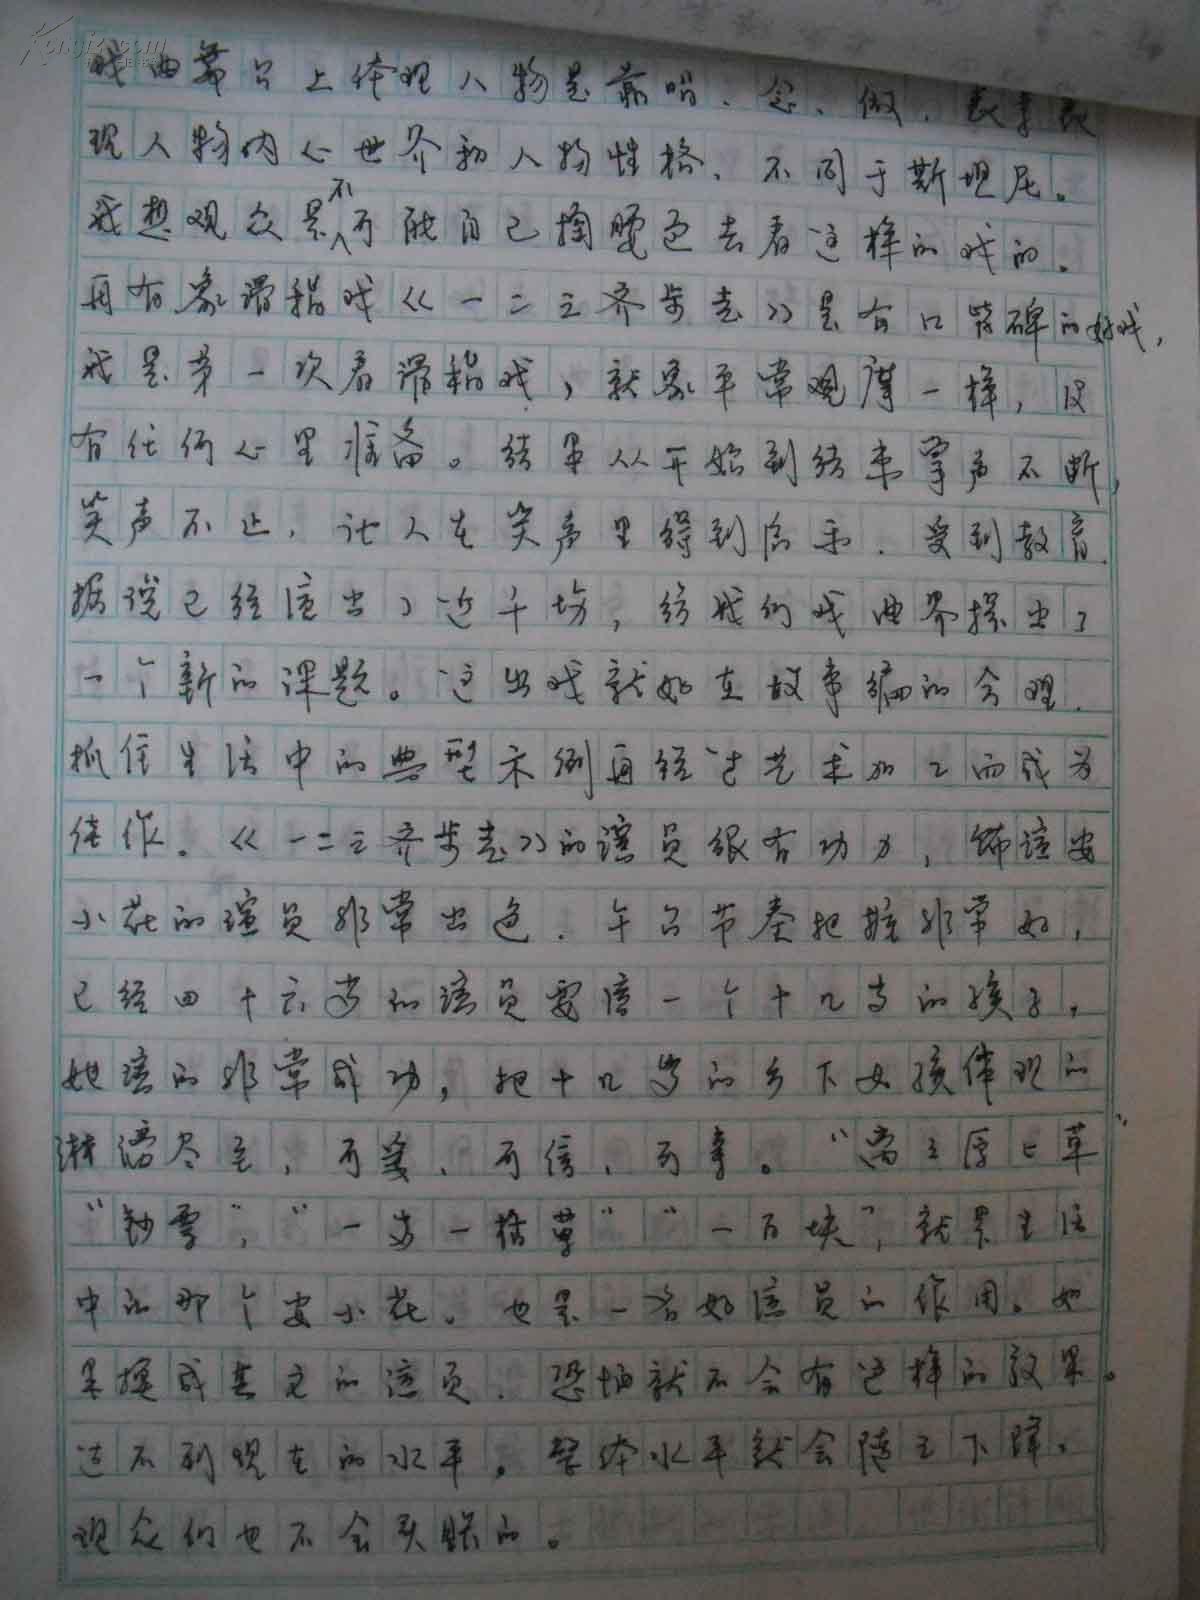 戏曲舞台上体现人物是靠唱、念、做、表来表
现人物内心世界和人物性格、不同于斯坦尼。
我想观众是不可能自己掏腰包去看这样的戏的。
再有象滑稽戏《一二三齐步走》是有口皆碑的好戏,
我是第一次看滑稽戏,就象平常观摩一样,没
有任何心里准备。结果从开始到结束掌声不断,
笑声不止,让人在笑声里得到启示.受到教育.
据说已经演出了近千场,给我们戏曲界探出了
一个新的课题。这出戏就好在故事编的合理.
抓住生活中的典型示例再经过艺术加工而成为
佳作.《一二三齐步走》的演员很有功力,饰演安
小花的演员非常出色.午台节奏把握非常好,
已经四十六岁的演员要演一个十几岁的孩子,
她演的非常成功,把十几岁的乡下女孩体现的
淋漓尽至,可爱、可信、可幸。"
"钞票","一岁一枯草""一百块",就是生活
中的那个安小花。也是一名好演员的作用。如
果换成其它的演员.恐怕就不会有这样的效果。
达不到现在的水平。整体水平就会随之下降。
观众们也不会买账的。